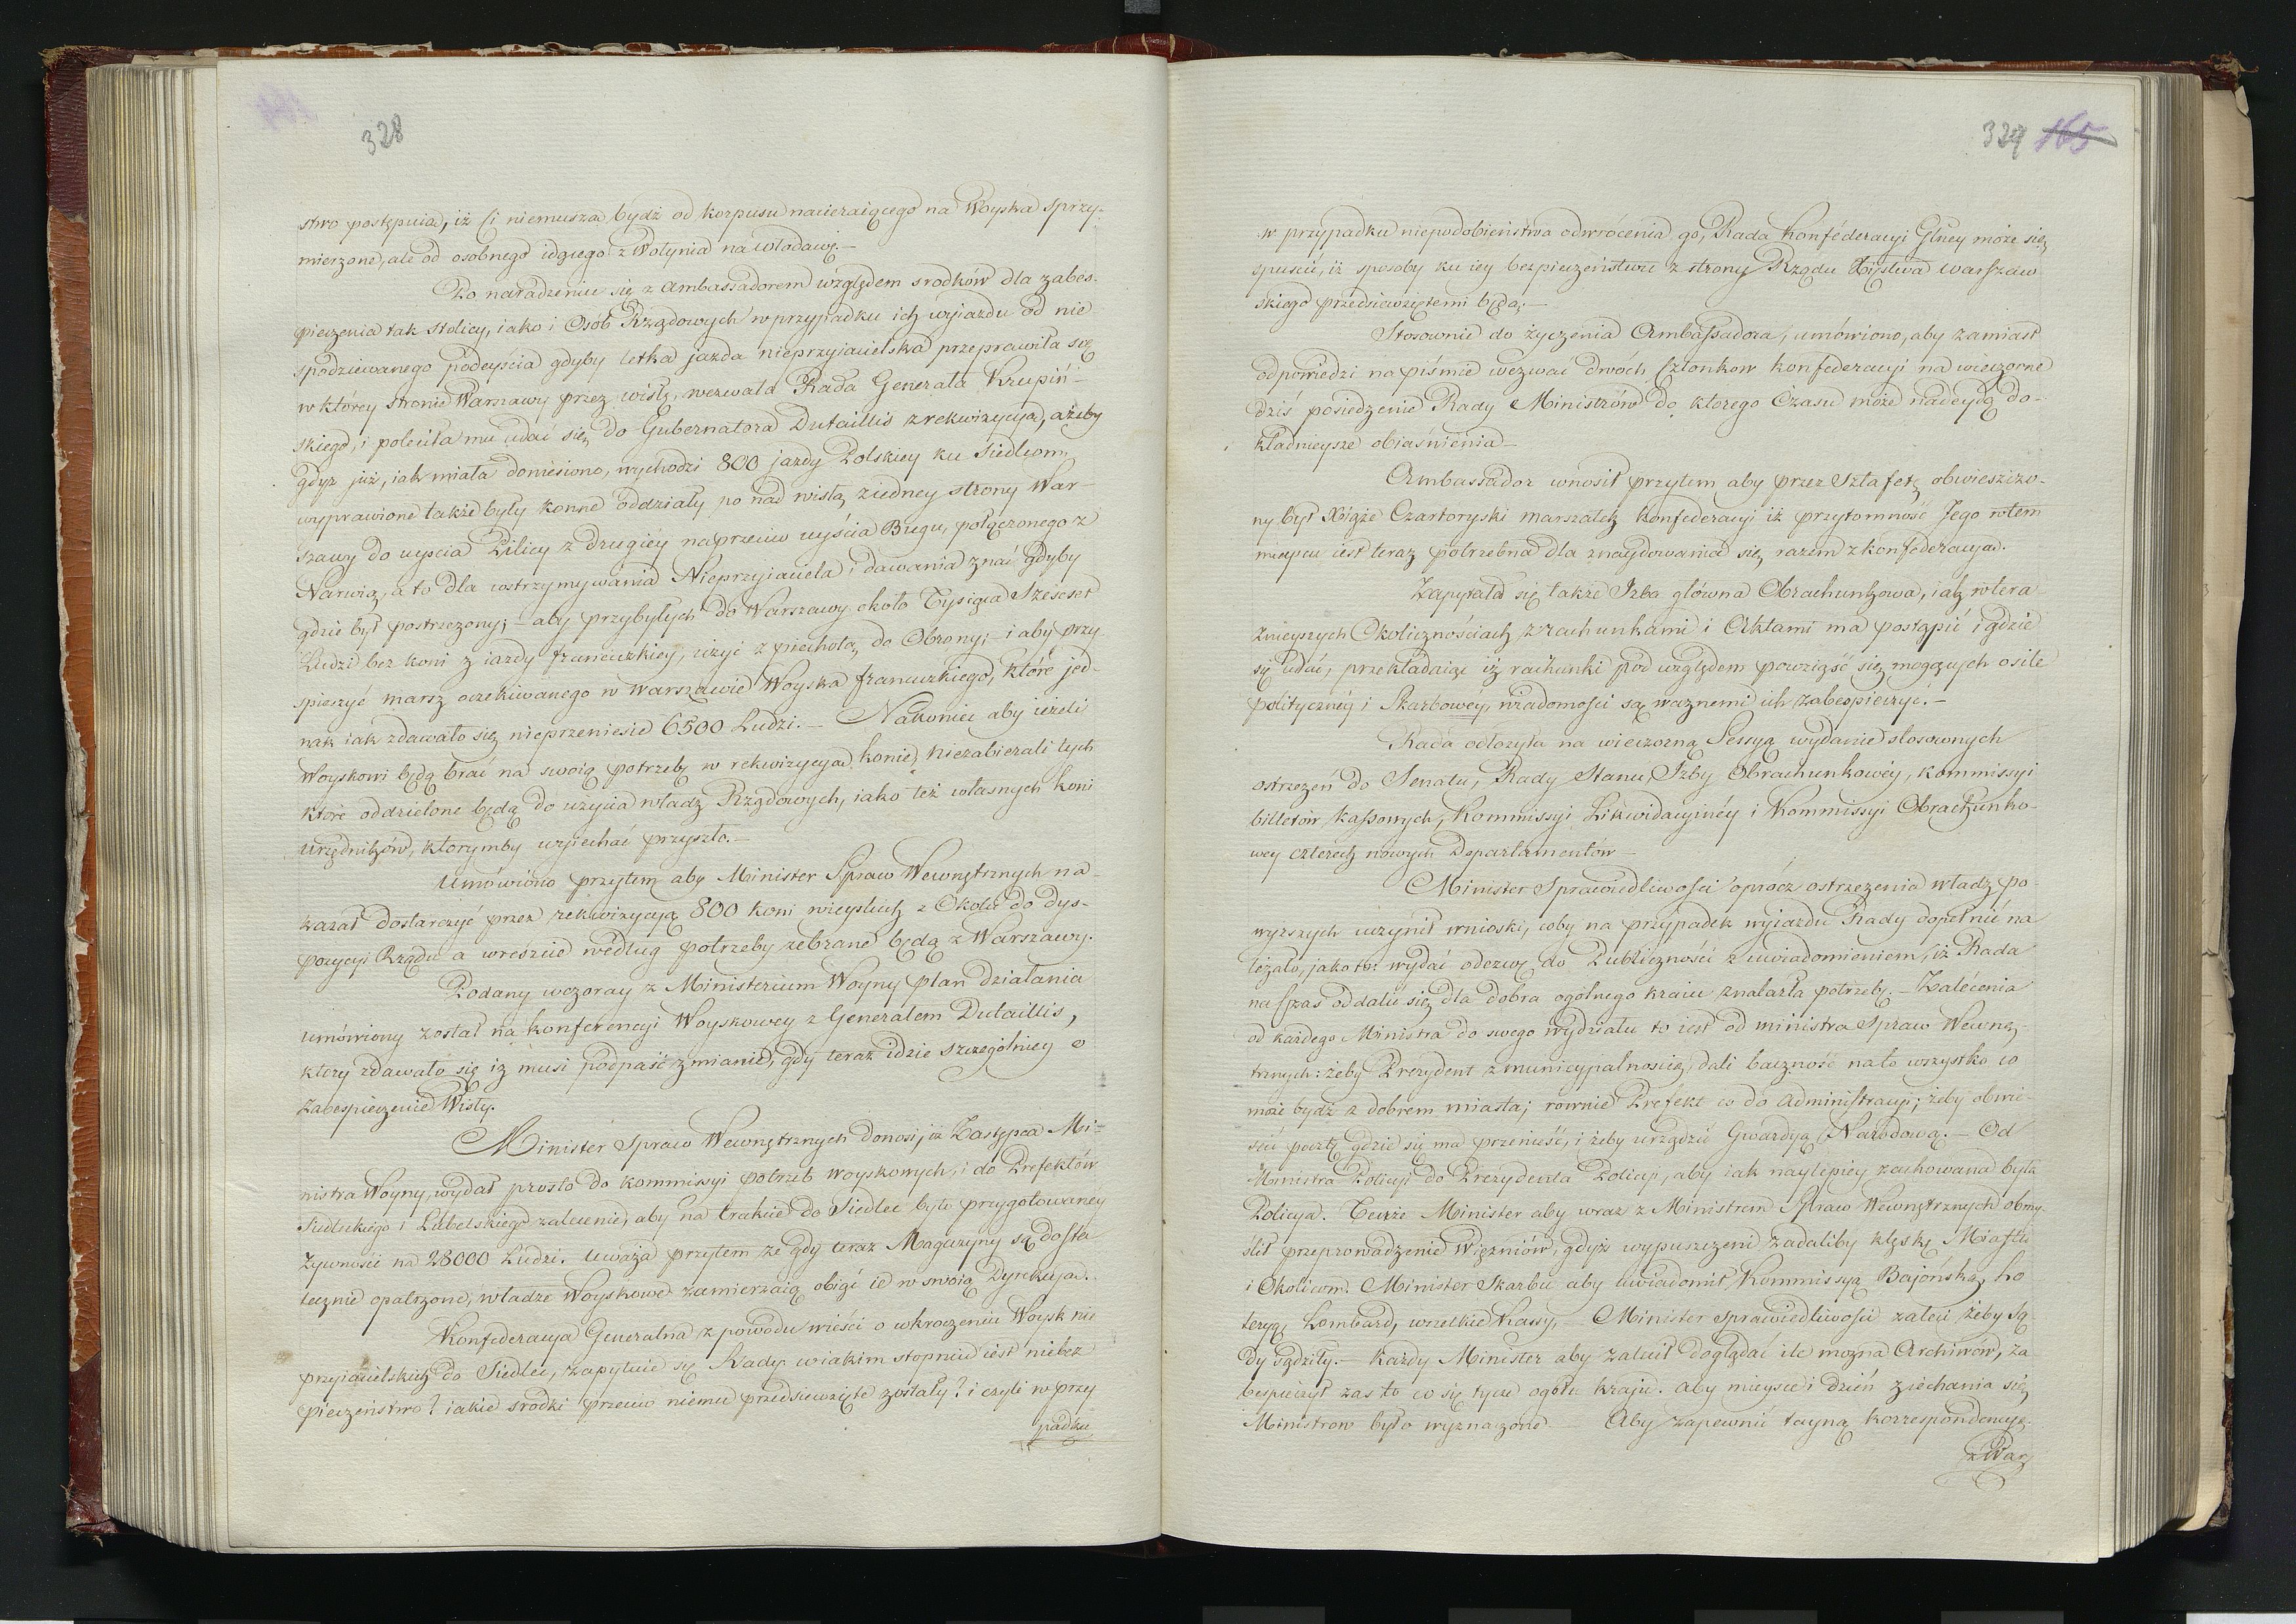 328
stwo postępuią, iż ci niemuszą bydź od korpusu nacieraiącego na Woyska sprzy-
mierzone, ale od osobnego idącego z Wołynia na Włodawę.—
Po naradzeniu się z Ambassadorem względem srodków dla zabes-
pieczenia tak stolicy, iako i Osób Rządowych w przypadku ich wyiazdu od nie
spodziewanego podeyścia gdyby letka jazda nieprzyiacielska przeprawiła się
w którey stronie Warszawy przez wisłę, wezwała Rada Generała Krupiń-
skiego, i poleciła mu udać się do Gubernatora Dutaillis z rekwizycyą, ażeby
gdyż już, iak miała doniesiono, wychodzi 800 jazdy Polskiey ku Siedlcom,
wyprawione także były konne oddziały po nad wisłą z iedney strony War-
szawy do uyscia Pilicy z drugiéy naprzeciw uyścia Bugu, połączonego z
Narwią, a to dla wstrzymywania Nieprzyiaciela i dawania znać gdyby
gdzie był postrzeżony; — aby przybyłych do Warszawy około Tysiąca Sześćset
Ludzi bez koni z iazdy francuzkiey, użyć z piechotą do Obrony; — i aby przy
spieszyć marsz oczekiwanego w Warszawie Woyska francuzkiego, które jed-
nak iak zdawało się nieprzeniesie 6500 Ludzi.— Nakoniec aby ieżeli
Woyskowi będą brać na swoią potrzebę w rekwizycyą konie, niezabierali tych
które oddzielone będą do użycia władz Rządowych, iako też własnych koni
urzędników, którymby wyiechać przyszło.—
Umówiono przytem aby Minister Spraw Wewnętrznych na-
kazał dostarczyć przez rekwizycyą 800 koni wieyskich z Okolic do dys-
pozycyi Rządu a wreszcie według potrzeby zebrane będą z Warszawy.
Podany wczoray z Ministerium Woyny plan działania
umówiony został na konferencyi Woyskowey z Generałem Dutaillis,
który zdawało się iż musi podpaść zmianie, gdy teraz idzie szczególniey o
zabespieczenie Wisły.
Minister Spraw Wewnętrznych donosi, iż Zastępca Mi-
nistra Woyny, wydał prosto do kommissyi potrzeb woyskowych, i do Prefektów
Siedleckiego i Lubelskiego zalecenie, aby na trakcie do Siedlec było przygotowaney
Żywności na 28000 Ludzi. Uważa przytem że gdy teraz Magazyny są dosta
tecznie opatrzone, władze Woyskowe zamierzaią obiąć ie w swoią Dyrekcyą.
Konfederacya Generalna z powodu wieści o wkroczeniu Woysk nie
przyiacielskich do Siedlec, zapytuie się Rady w iakim stopniu iest niebez
pieczeństwo? iakie srodki przeciw niemu przedsiewzięte zostały? i czyli w przy
padku
329 165
w przypadku niepodobieństwa odwrócenia go, Rada Konféderacyi Głney może się
spuścić, iż sposoby ku iey bezpieczeństwu z strony Rządu Xięstwa Warszaw
skiego przedsiewziętemi będą.—
Stosownie do życzenia Ambassadora, umówiono, aby zamiast
odpowiedzi na piśmie wezwać dwóch Członkow konfederacyi na wieczorne
dziś posiedzenie Rady Ministrów do ktorego Czasu może naddeydą do-
kładnieysze obiaśnienia—
Ambassador wnosił przytem aby przez Sztafetę obwieszczo-
ny był Xiąże Czartoryski marszałek konfederacyi iż przytomność Jego w tem
mieyscu iest teraz potrzebna dla znaydowania się razem z konfederacyą.
Zapytała się także Izba główna Obrachunkowa, iak w tera-
znieyszych Okolicznościach z rachunkami i Aktami ma postąpić i gdzie
się udać, przekładaiąc iż rachunki pod względem powziąść się mogących o sile
polityczney i Skarbowéy, wiadomości są ważnemi ich zabespieczyć.—
Rada odłożyła na wieczorną Sessyą wydanie stosownych
ostrzeżeń do Senatu, Rady Stanu, Izby Obrachunkowéy, kommissyi
billetów kassowych, Kommissyi Likwidacyinéy i Kommissyi Obrachunko-
wey czterech nowych Departamentów—
Minister Sprawiedliwości oprócz ostrzeżenia władz po-
wyższych uczynił wnioski, coby na przypadek wyiazdu Rady dopełnić na
leżało, jako to: wydać odezwę do Publiczności z uwiadomieniem, iż Rada
na Czas oddalić się dla dobra ogólnego kraiu znalazła potrzebę.— Zalécenia
od każdego Ministra do swego wydziału to iest od ministra Spraw Wewnę-
trznych: żeby Prezydent z municypalnością, dali baczność na to wszystko co
może bydź z dobrem miasta; równie Prefekt co do administracyi; żeby obwie-
ścić pocztę gdzie się ma przenieść, i żeby urządzić Gwardyą Narodową.— Od
Ministra Policyi do Prezydenta Policyi, aby iak naylepiey zachowana była
Policya. Tenże Minister aby wraz z Ministrem Spraw Wewnętrznych obmy-
ślił przeprowadzenie Więzniów, gdyż wypuszczeni zadaliby klęskę Miastu
i Okolicom. Minister Skarbu aby uwiadomił Kommissyą Bajońską, Lo
teryą, Lombard, wszelkie Kassy.— Minister sprawiedliwości zaleci żeby Są-
dy sądziły.— Każdy Minister aby zalecił doglądać ile można Archiwów, za
bespieczył zas to co się tycze ogółu kraju. Aby mieysce i dzień ziechania się
Ministrow było wyznaczone— Aby zapewnić tayną korrespondencyą
z War